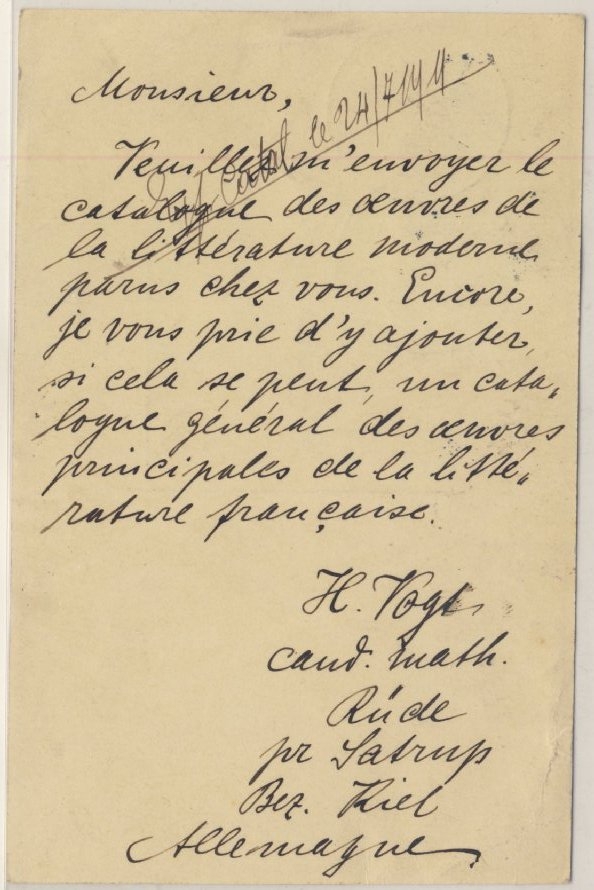 Monsieur,
le 24/7 1911
Veuillez m'envoyer le
catalogue des œuvres de
la littérature moderne
parus chez vous. Encore,
je vous prie d'y ajouter,
si cela se peut, un cata„
logue général des œuvres
principales de la litté„
rature française.
H. Vogt
cand. math.
Rüde
pr Satrup
Bez. Kiel
Allemagne